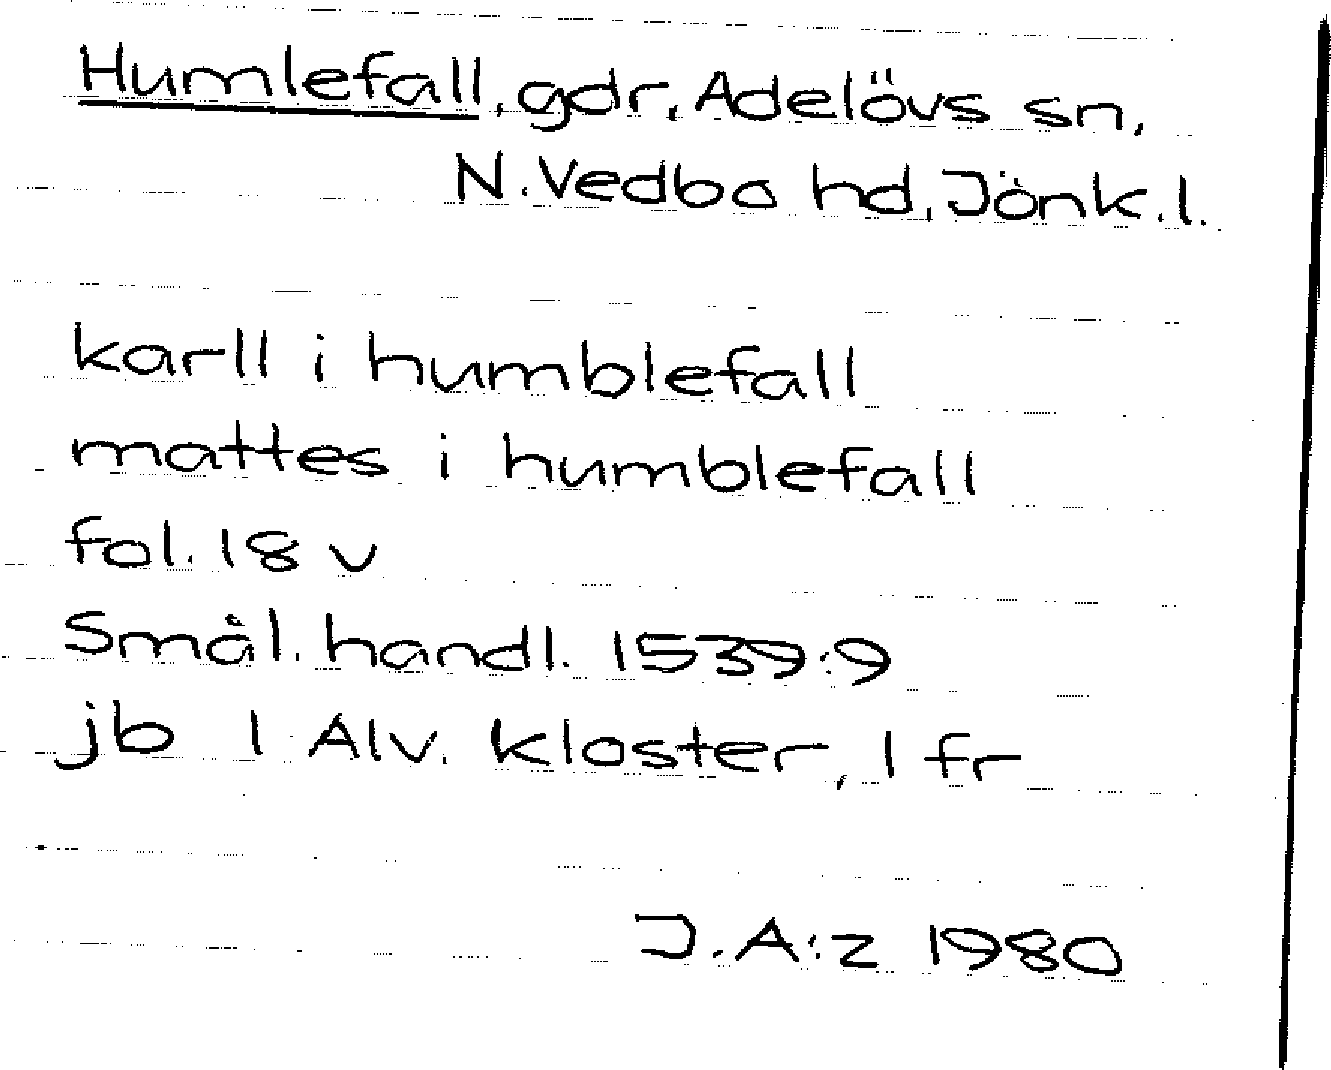 Humlefall, gdr, Adelövs sn,
N. Vedbo hd, Jönk. l.
karll i humblefall
mattes i humblefall
fol. 18 v
Smål. handl. 1539:9
jb 1 Alv. kloster, 1 fr
J. A:z 1980